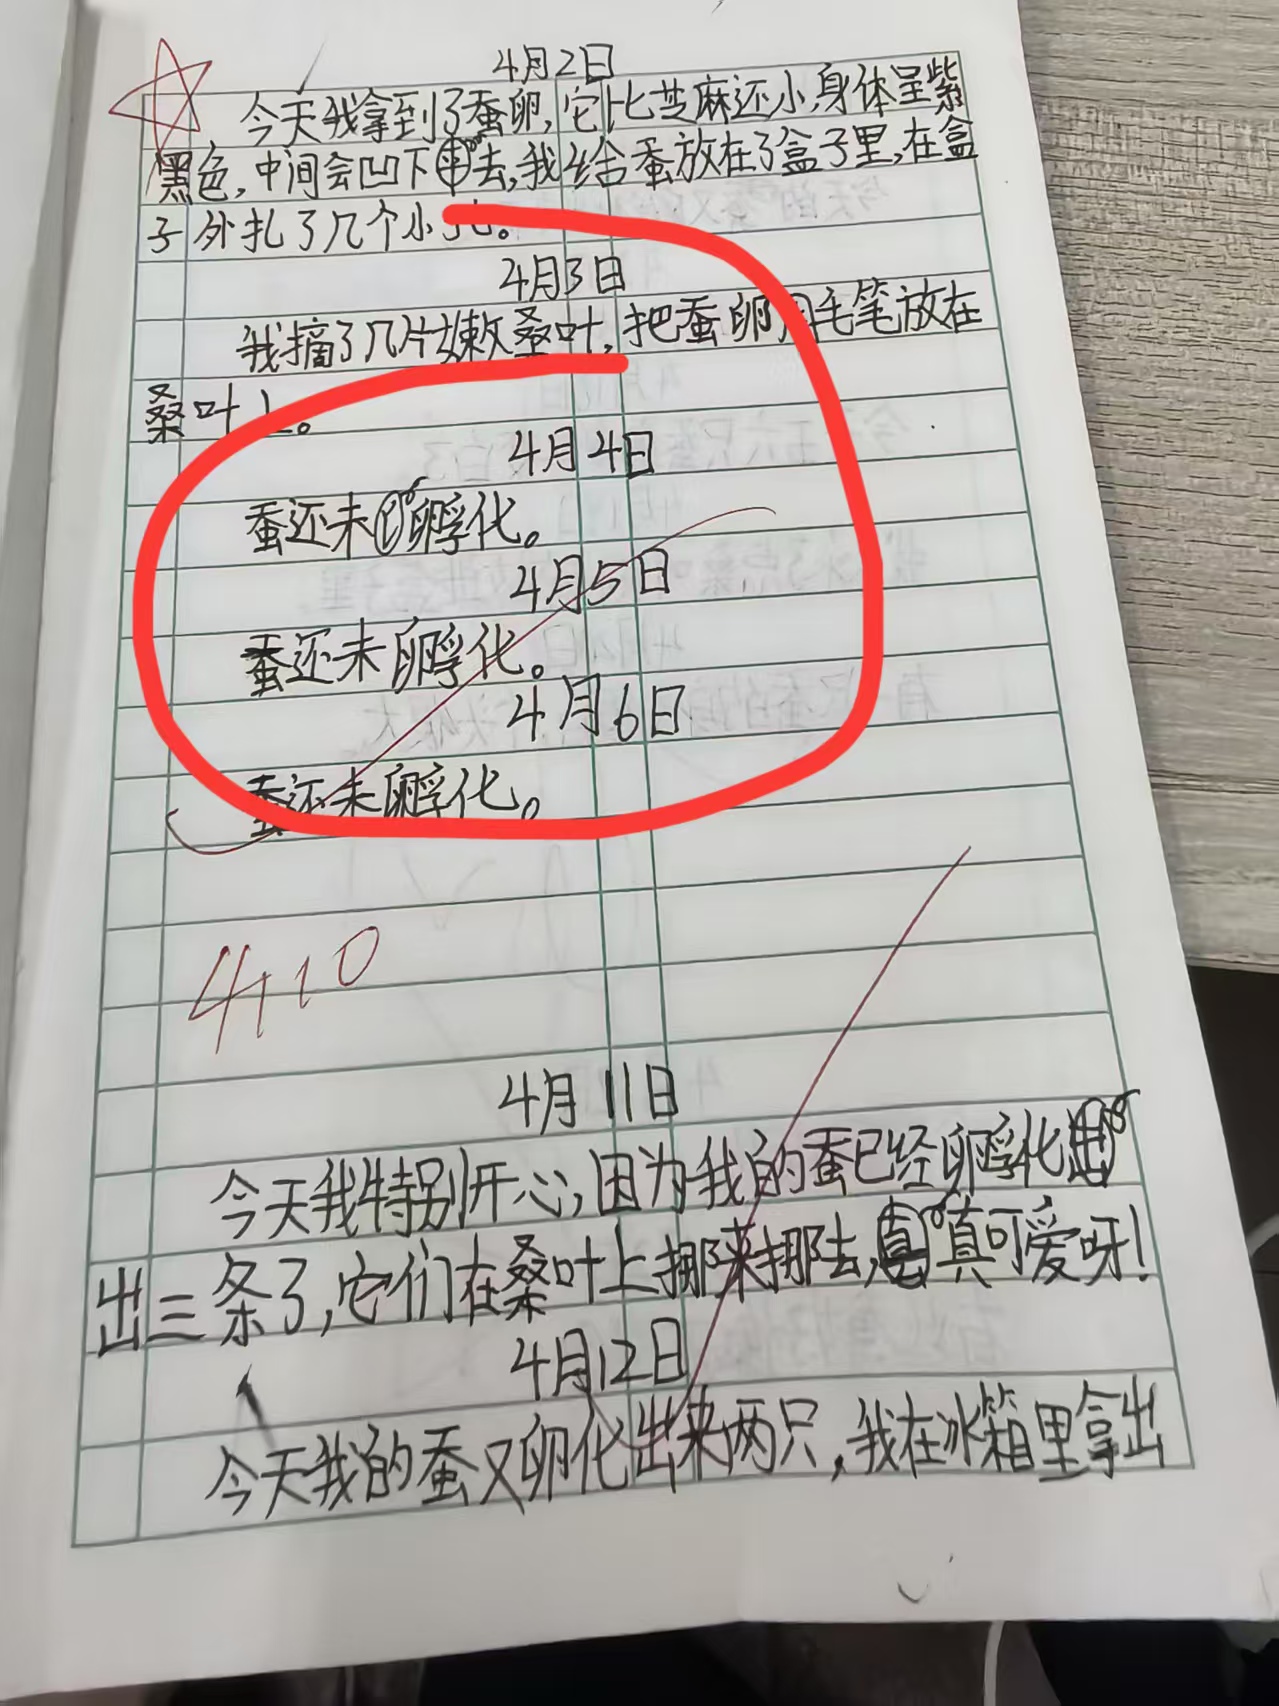 4月2日
今天我拿到了蚕卵,它比芝麻还小,身体呈紫
黑色,中间会凹下去,我给蚕放在了盒子里,在盒
子外扎了几个小孔。
4月3日
我摘了几片嫩桑叶,把蚕卵用毛笔放在
桑叶上。
4月4日
蚕还未孵化。
4月5日
蚕还未孵化。
4月6日
蚕还未孵化。
4.10
4月11日
今天我特别开心,因为我的蚕已经孵化
出三条了,它们在桑叶上挪来挪去,真可爱呀!
4月12日
今天我的蚕又卵化出来两只,我在冰箱里拿出